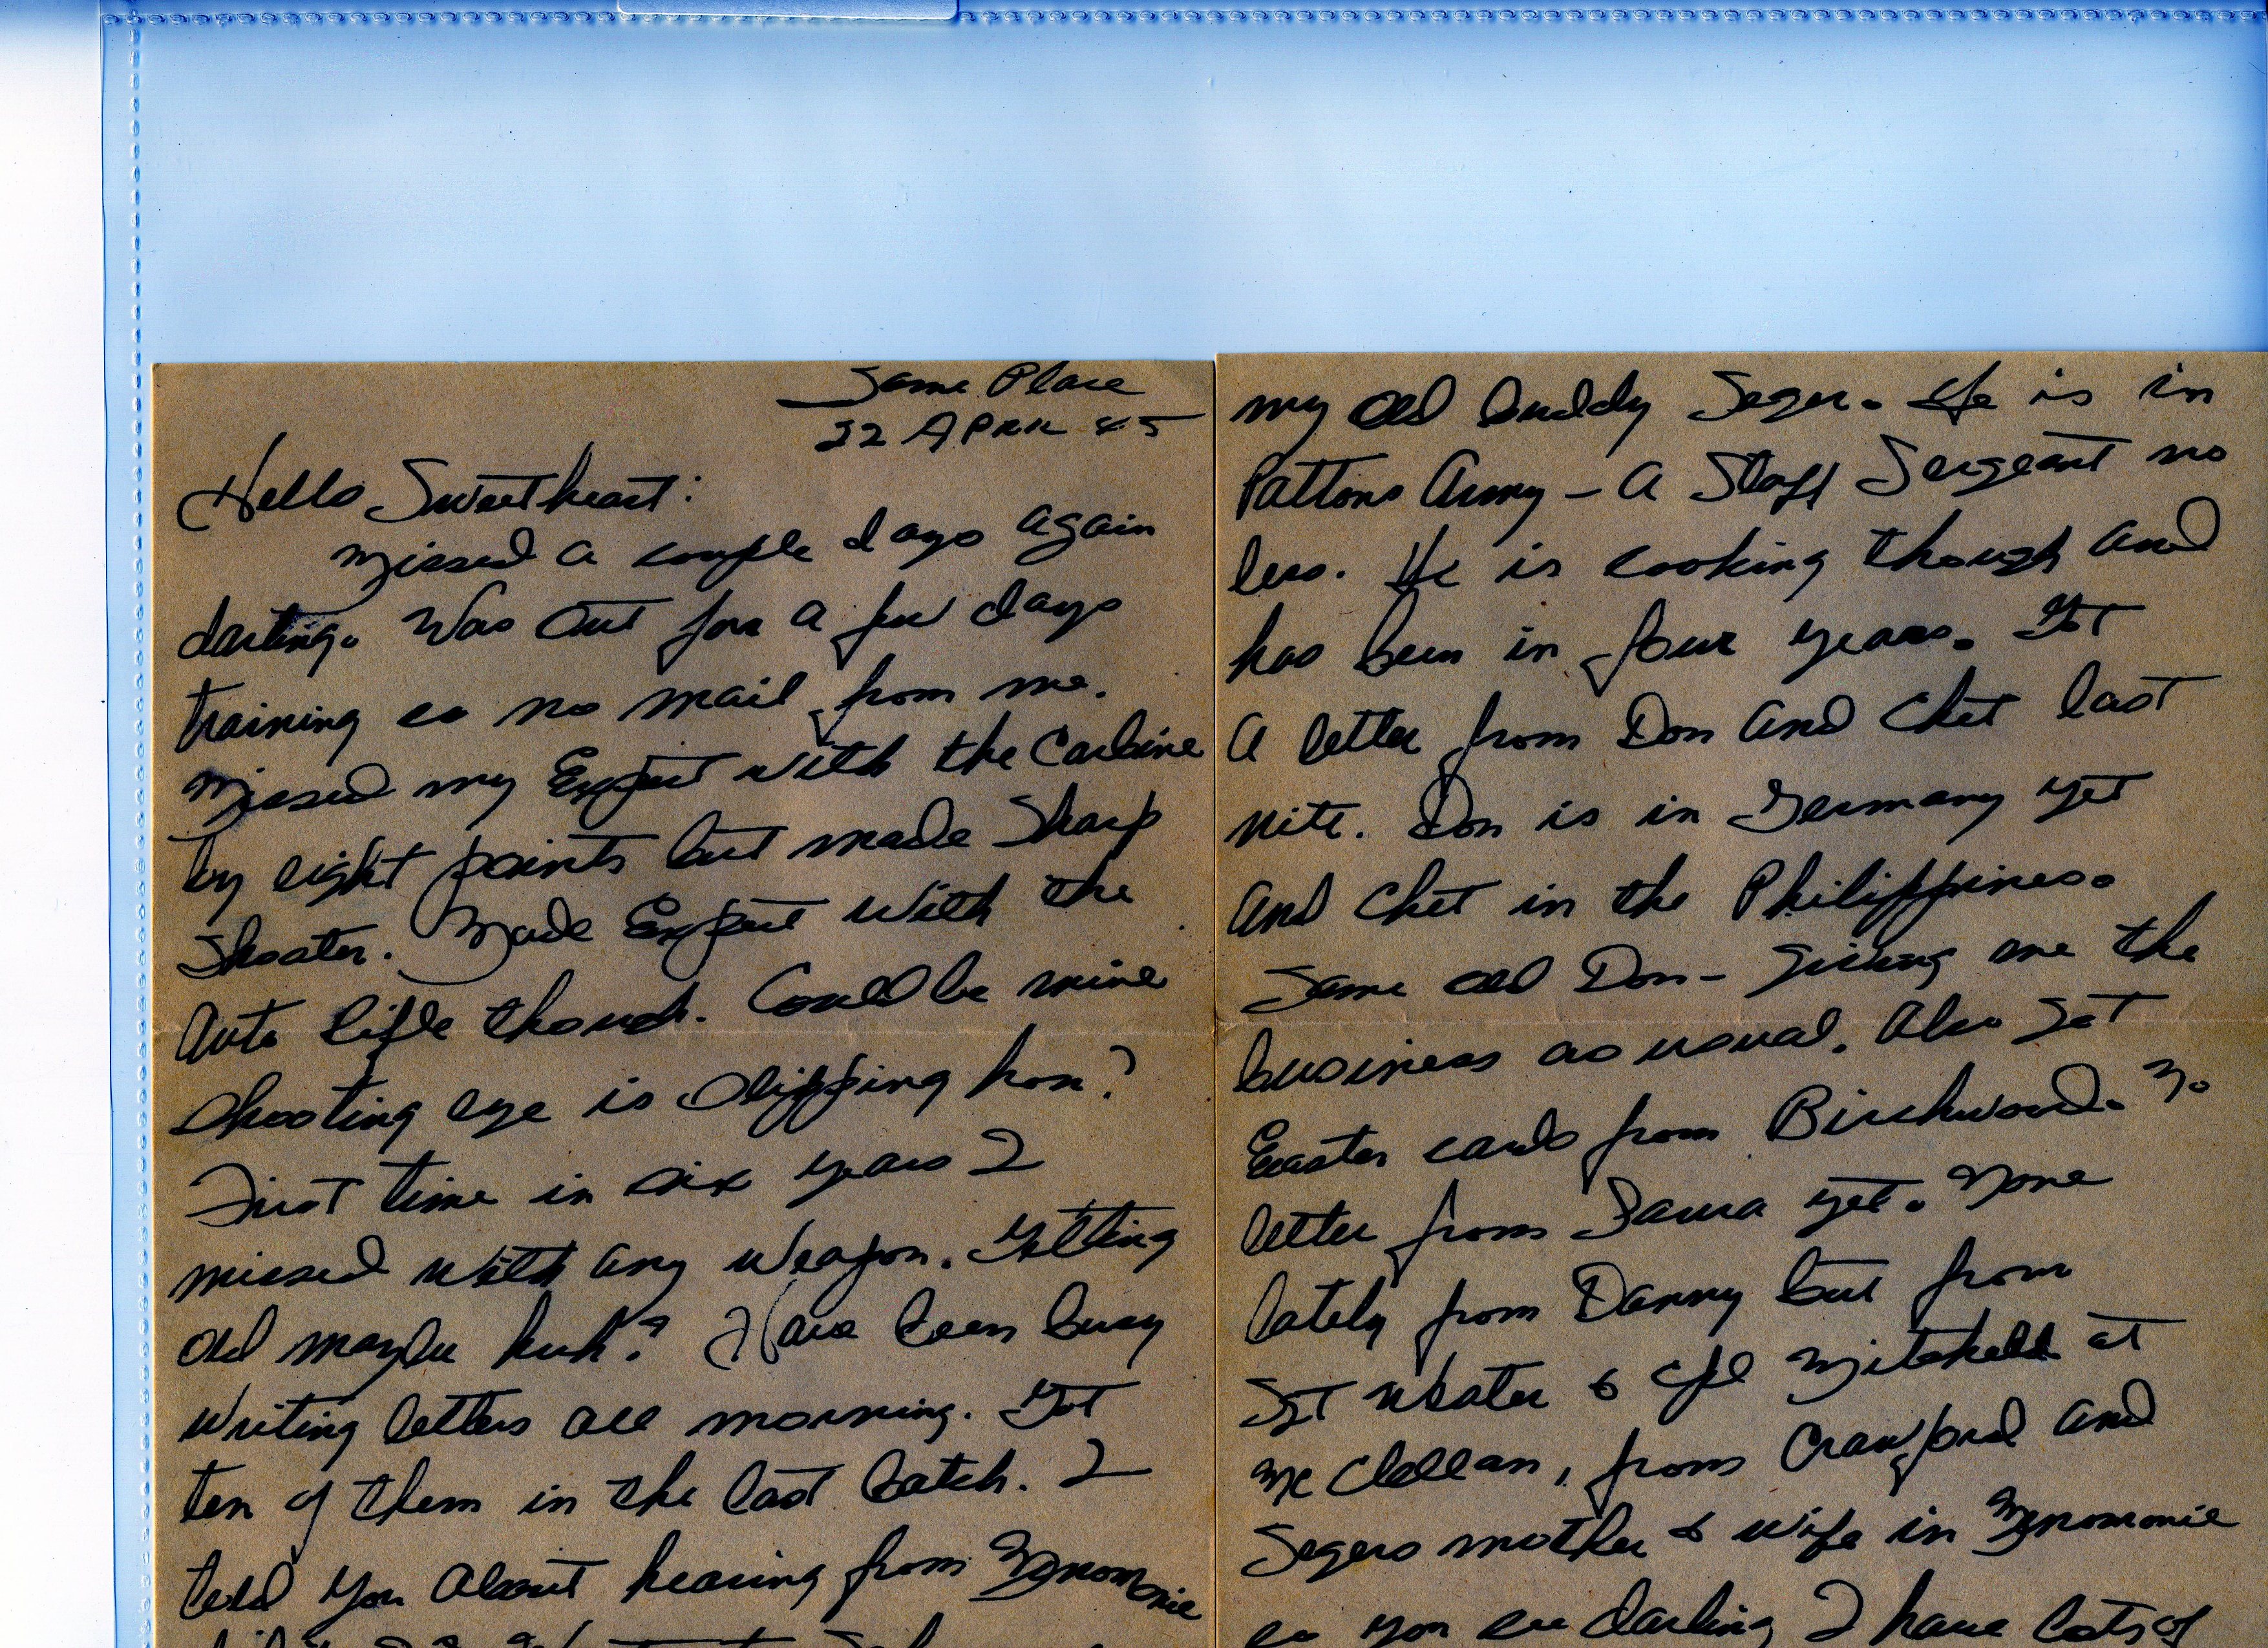 Same Place
22 April 45
Hello Sweetheart:
Missed a couple days again
darling. Was out for a few days
training so no mail from me.
Missed my Expert with the Carbine
by eight points but made Sharp
Shooter. Made Expert with the
Auto rifle though. Could be mine
shooting eye is slipping hon?
First time in six years I
missed with any weapon. Getting
old maybe huh? Have been busy
writing letters all morning. Got
ten of them in the last batch. I
told you about hearing from Menomonie
my old buddy Seger. He is in
Pattons Army - A Staff Sergeant no
less. He is cooking though and
has been in four years. Got
A letter from Don and Chet last
nite. Don is in Germany yet
And Chet in the Philippines.
Same old Don - giving me the
business as usual. Also got
Easter cards from Birchwood. No
letter from Laura yet. None
lately from Danny but from
Sgt & Cpl Mitchell at
McClellan, from Crawford and
Segers mother & wife in Menomonie
so you see darling I have lots of